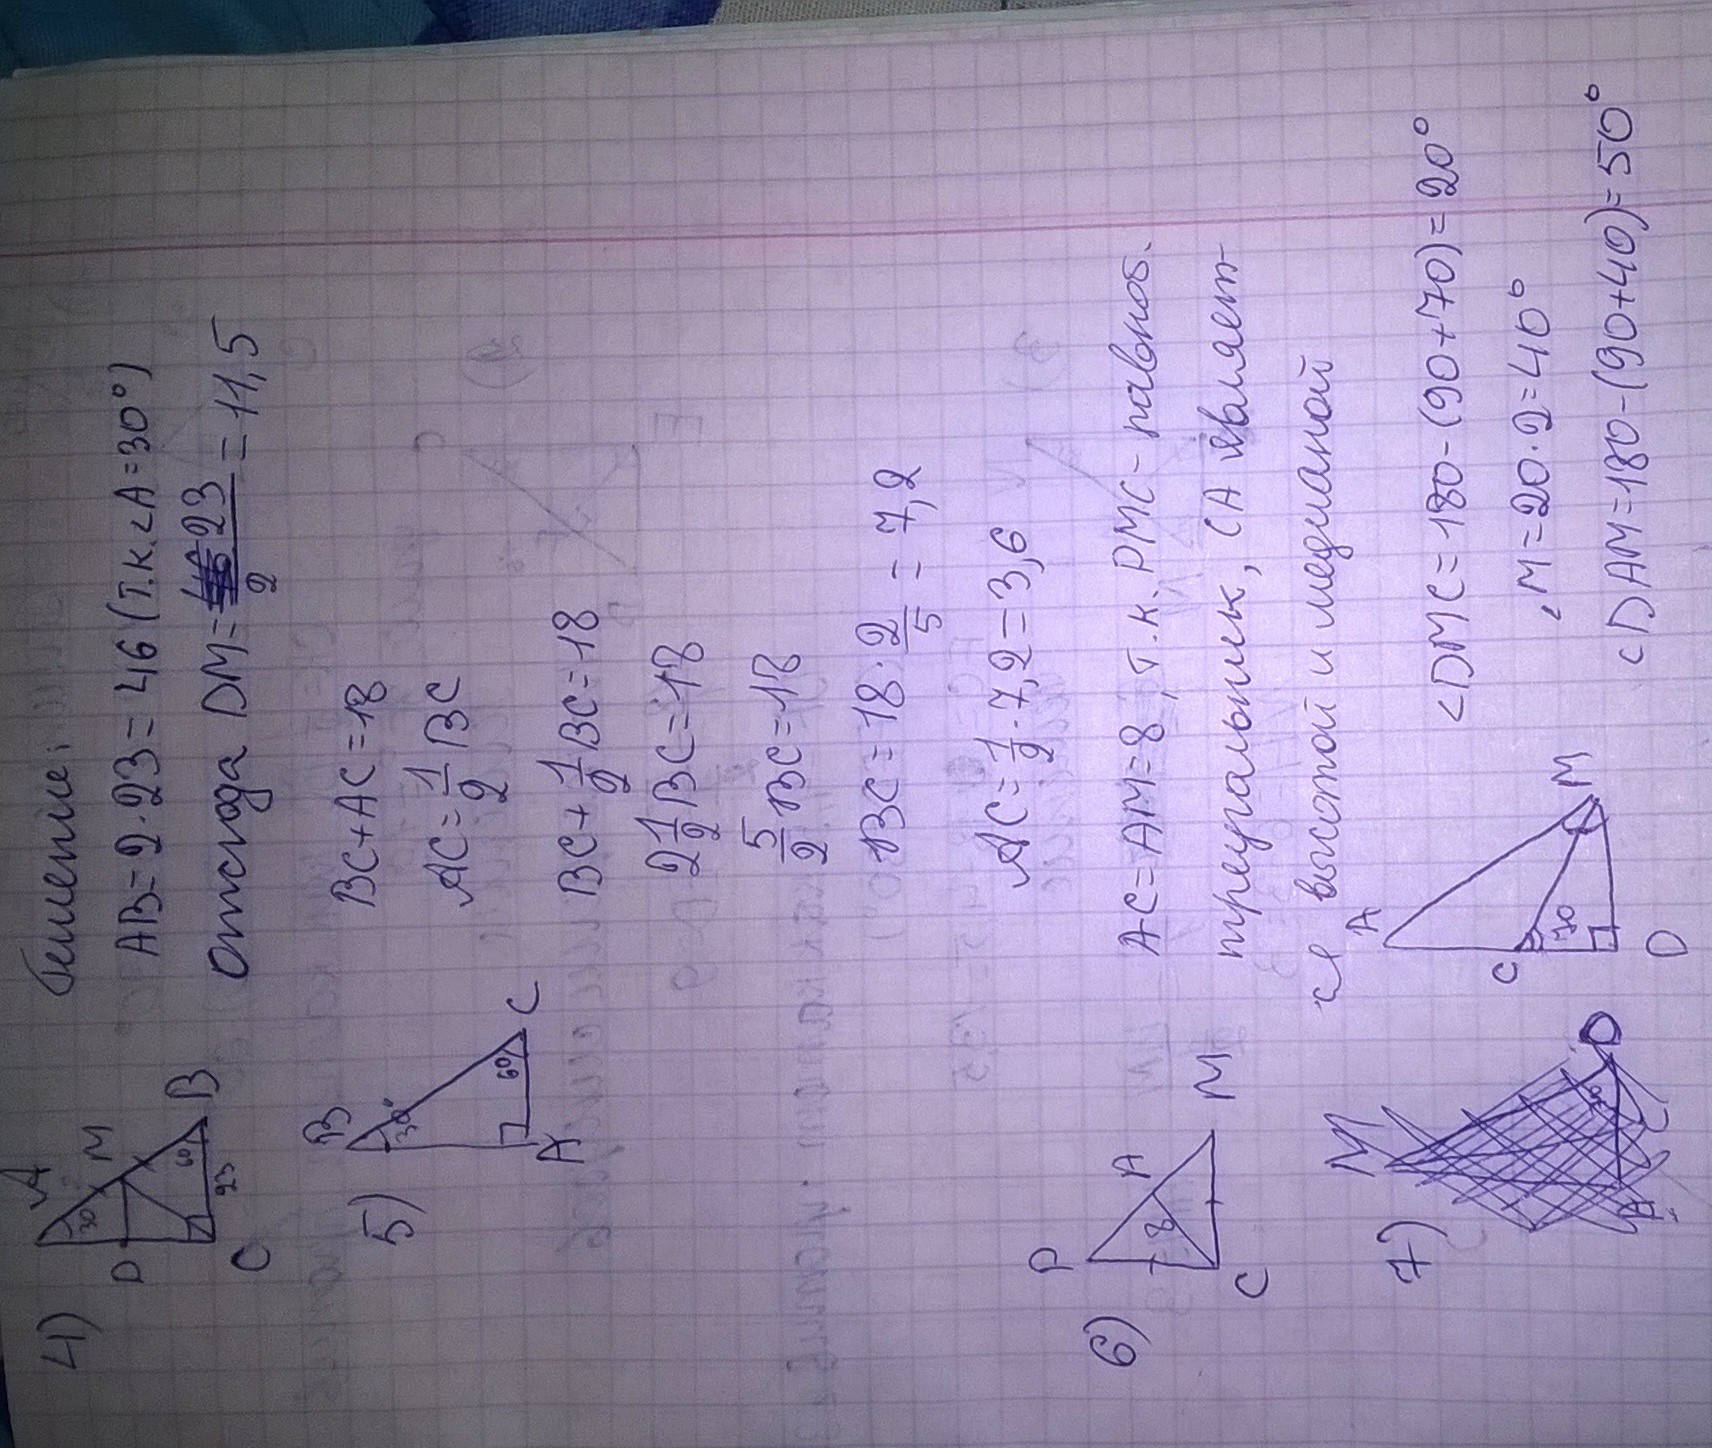 Решение:
4)
A
30
M
D
60
B
C
23
AB = 2 · 23 = 46 (т.к. <A = 30°)
Отсюда DM = 23/2 = 11,5
5)
B
30°
60
A
C
BC + AC = 18
AC = 1/2 BC
BC + 1/2 BC = 18
2 1/2 BC = 18
5/2 BC = 18
BC = 18 · 2/5 = 7,2
AC = 1/2 · 7,2 = 3,6
6)
P
A
8
C
M
AC = AM = 8, т.к. PMC - равноб.
треугольник, CA являет-
ся высотой и медианой
7)
A
C
70
D
M
<DMC = 180 - (90 + 70) = 20°
M = 20 · 2 = 40°
<DAM = 180 - (90 + 40) = 50°